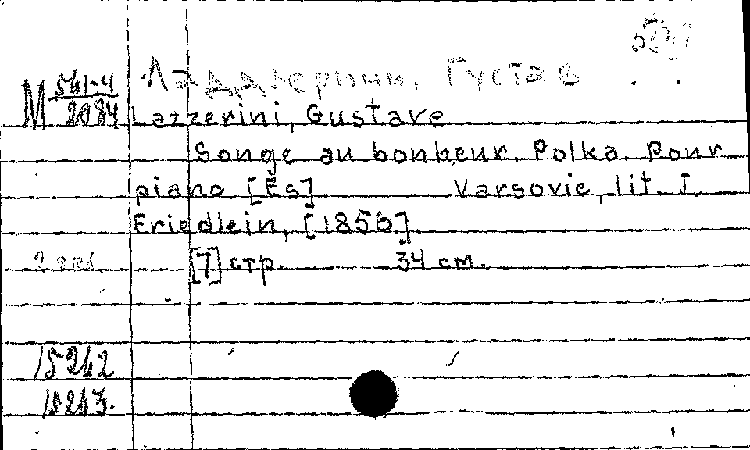 Ладзерини, Густав
М 561-4/2084 Lazzerini, Gustave
Songe au bonheur. Polka. Pour
piano [Es] Varsovie, lit. J.
Friedlein, [1856].
2 экз. [7] стр. 34 см.
15242
15243.